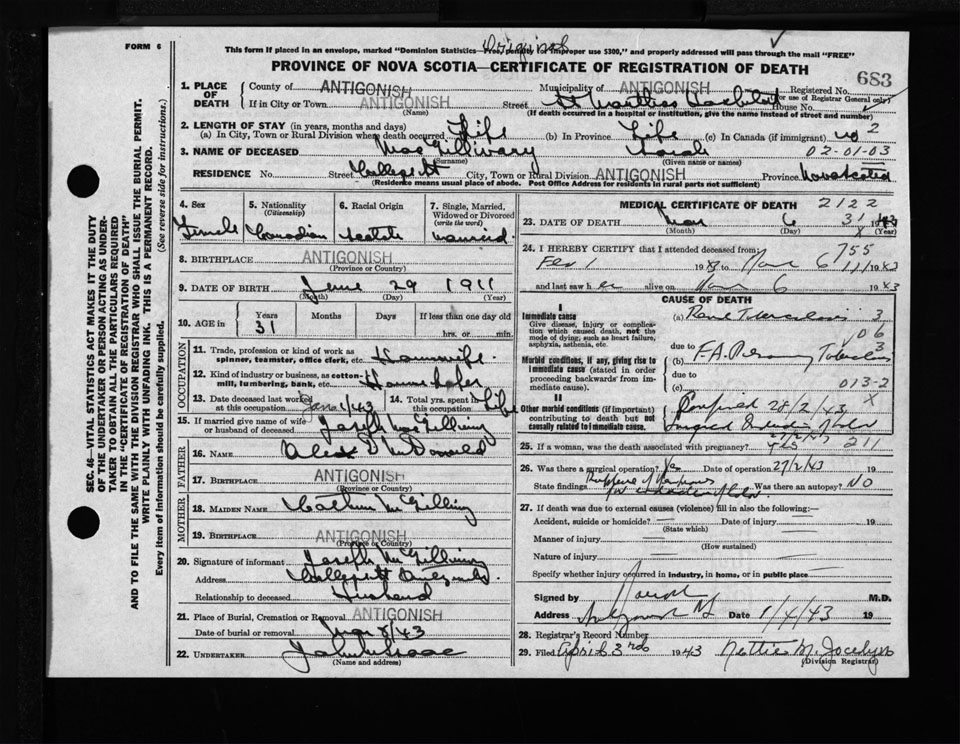 FORM 6
Original
This form if placed in an envelope, marked "Dominion Statistics—Free, penalty for improper use $300," and properly addressed will pass through the mail "FREE"
PROVINCE OF NOVA SCOTIA—CERTIFICATE OF REGISTRATION OF DEATH
683
1. PLACE OF DEATH
County of ANTIGONISH Municipality of ANTIGONISH Registered No.
(For use of Registrar General only)
If in City or Town ANTIGONISH Street St Marthas Hospital House No.
(Name) (If death occurred in a hospital or institution, give the name instead of street and number)
2. LENGTH OF STAY (in years, months and days)
(a) In City, Town or Rural Division where death occurred Life (b) In Province Life (c) In Canada (if immigrant) no 2
3. NAME OF DECEASED MacGillivary Sarah 02-01-03
(Surname) (Given name or names)
RESIDENCE No. Street College St City, Town or Rural Division ANTIGONISH Province Nova Scotia
(Residence means usual place of abode. Post Office Address for residents in rural parts not sufficient)
4. Sex Female
5. Nationality (Citizenship) Canadian
6. Racial Origin Scotch
7. Single, Married, Widowed or Divorced (write the word) married
8. BIRTHPLACE ANTIGONISH
(Province or Country)
9. DATE OF BIRTH June 29 1911
(Month) (Day) (Year)
10. AGE in Years 31 Months Days If less than one day old
hrs. or min.
OCCUPATION
11. Trade, profession or kind of work as spinner, teamster, office clerk, etc. Housewife
12. Kind of industry or business, as cotton-mill, lumbering, bank, etc.
13. Date deceased last worked at this occupation Jan 1/43
14. Total yrs. spent in this occupation Life
15. If married give name of wife or husband of deceased Joseph McGillivray
FATHER
16. NAME Alex D McDonald
17. BIRTHPLACE ANTIGONISH
(Province or Country)
MOTHER
18. MAIDEN NAME
19. BIRTHPLACE ANTIGONISH
(Province or Country)
20. Signature of informant Joseph McGillivray
Address College St Antigonish
Relationship to deceased Husband
21. Place of Burial, Cremation or Removal ANTIGONISH
Date of burial or removal Mar 8/43
22. UNDERTAKER
(Name and address)
MEDICAL CERTIFICATE OF DEATH 2122
23. DATE OF DEATH Mar 6 31 1943
(Month) (Day) (Year)
X
24. I HEREBY CERTIFY that I attended deceased from 755
Feb 1 1943 to Mar 6 1943
and last saw her alive on Mar 6 1943
CAUSE OF DEATH
I
Immediate cause
Give disease, injury or complication which caused death, not the mode of dying, such as heart failure, asphyxia, asthenia, etc.
(a) Renal Tuberculosis 3
06
Morbid conditions, if any, giving rise to immediate cause (stated in order proceeding backwards from immediate cause)
due to 3
(b)
due to
(c) 013-2
X
II
Other morbid conditions (if important) contributing to death but not causally related to immediate cause.
28/2/43
25. If a woman, was the death associated with pregnancy? yes 211
26. Was there a surgical operation? Yes Date of operation 27/2/43 19
State findings Was there an autopsy? NO
27. If death was due to external causes (violence) fill in also the following:—
Accident, suicide or homicide? Date of injury 19
(State which)
Manner of injury
(How sustained)
Nature of injury
Specify whether injury occurred in industry, in home, or in public place
Signed by M.D.
Address Antigonish NS Date 1/4/43 19
28. Registrar's Record Number
29. Filed April 3rd 1943 Nettie M. Jocelyn
(Division Registrar)
SEC. 46—VITAL STATISTICS ACT MAKES IT THE DUTY OF THE UNDERTAKER OR PERSON ACTING AS UNDERTAKER TO OBTAIN ALL THE PARTICULARS REQUIRED IN THE "CERTIFICATE OF REGISTRATION OF DEATH" AND TO FILE THE SAME WITH THE DIVISION REGISTRAR WHO SHALL ISSUE THE BURIAL PERMIT.
WRITE PLAINLY WITH UNFADING INK. THIS IS A PERMANENT RECORD.
Every item of Information should be carefully supplied. (See reverse side for instructions.)